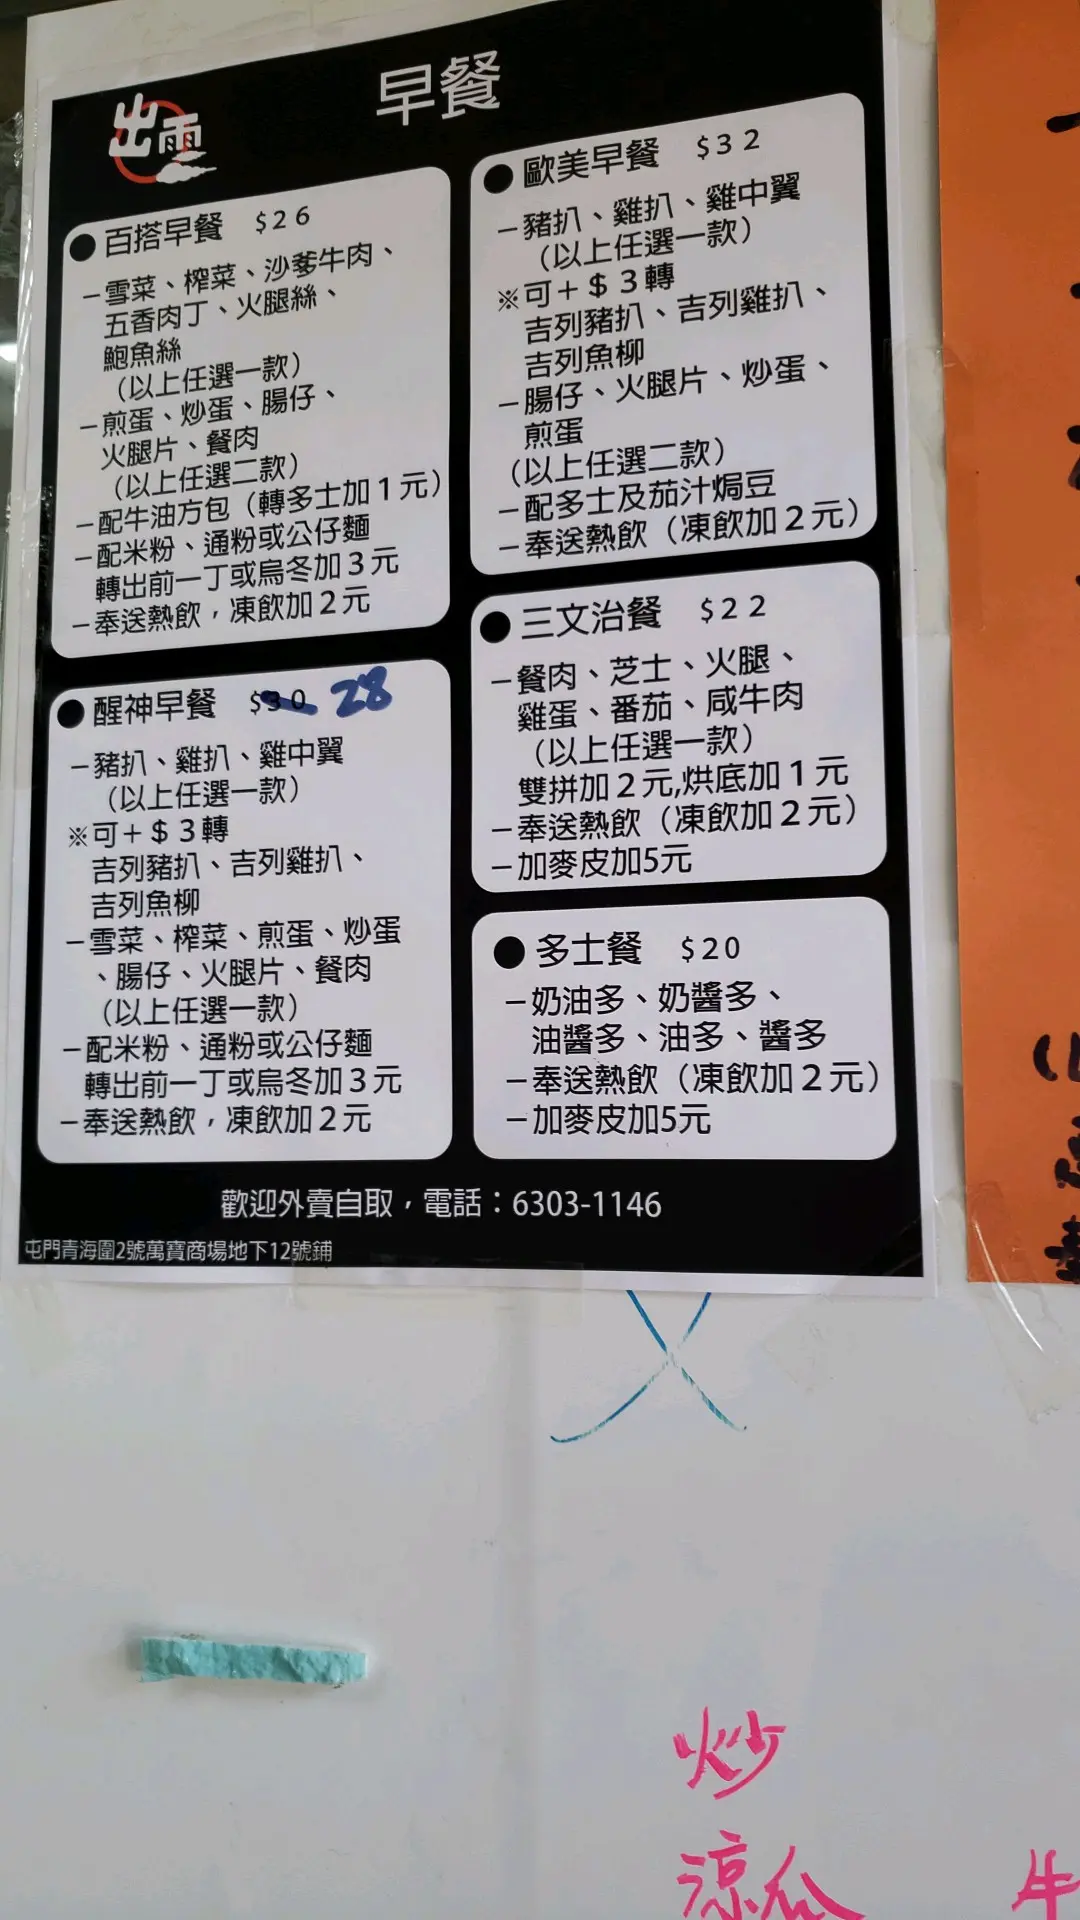 早餐
出雨
●百搭早餐 $26
－雪菜、榨菜、沙爹牛肉、
五香肉丁、火腿絲、
鮑魚絲
（以上任選一款）
－煎蛋、炒蛋、腸仔、
火腿片、餐肉
（以上任選二款）
－配牛油方包（轉多士加1元）
－配米粉、通粉或公仔麵
轉出前一丁或烏冬加3元
－奉送熱飲，凍飲加2元
●醒神早餐 $30 28
－豬扒、雞扒、雞中翼
（以上任選一款）
※可＋$3轉
吉列豬扒、吉列雞扒、
吉列魚柳
－雪菜、榨菜、煎蛋、炒蛋
、腸仔、火腿片、餐肉
（以上任選一款）
－配米粉、通粉或公仔麵
轉出前一丁或烏冬加3元
－奉送熱飲，凍飲加2元
●歐美早餐 $32
－豬扒、雞扒、雞中翼
（以上任選一款）
※可＋$3轉
吉列豬扒、吉列雞扒、
吉列魚柳
－腸仔、火腿片、炒蛋、
煎蛋
（以上任選二款）
－配多士及茄汁焗豆
－奉送熱飲（凍飲加2元）
●三文治餐 $22
－餐肉、芝士、火腿、
雞蛋、番茄、咸牛肉
（以上任選一款）
雙拼加2元,烘底加1元
－奉送熱飲（凍飲加2元）
－加麥皮加5元
●多士餐 $20
－奶油多、奶醬多、
油醬多、油多、醬多
－奉送熱飲（凍飲加2元）
－加麥皮加5元
歡迎外賣自取，電話：6303-1146
屯門青海圍2號萬寶商場地下12號鋪
炒
涼瓜
牛